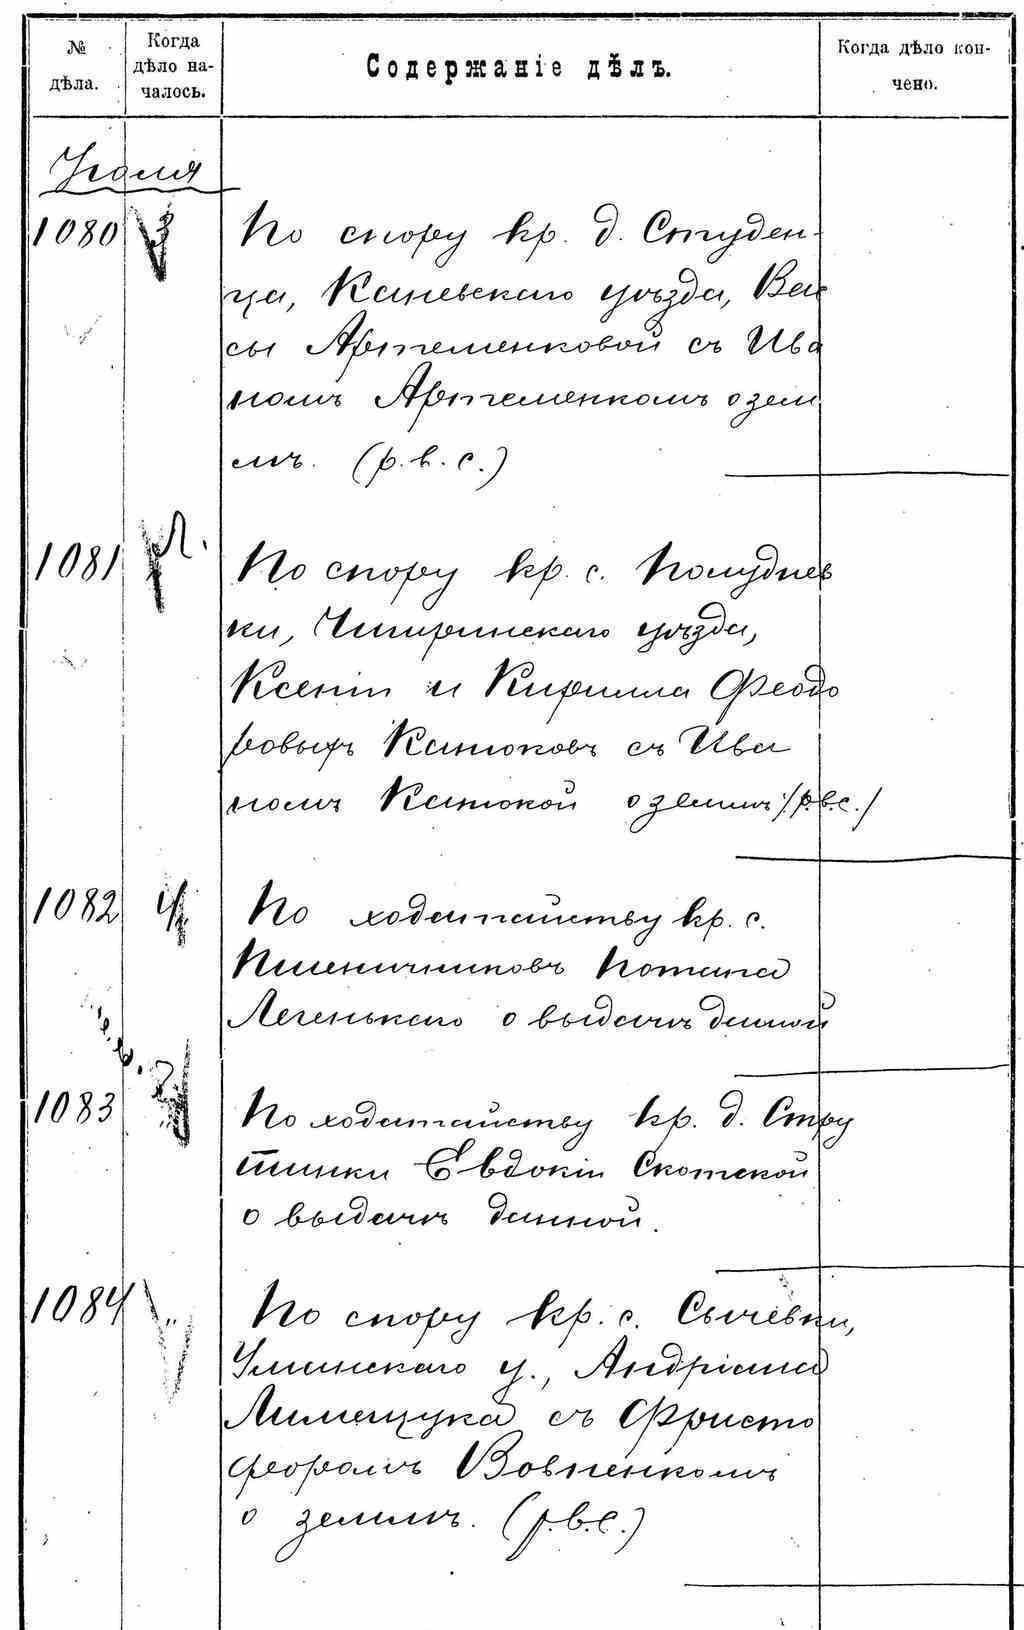 № дѣла.
Когда дѣло началось.
Содержаніе дѣлъ.
Когда дѣло кончено.
Іюля
1080 3 По спору кр. д. Студен-
ца, Каневскаго уѣзда, Ва
сы Артеменковой съ Ива
номъ Артеменкомъ о зем
лѣ. (р.в.с.)
1081 По спору кр. с. Полуднев
ки, Чигиринскаго уѣзда,
Ксеніи и Кирилла Феодо
ровыхъ Катюковъ съ Ива
номъ Катюкой о землѣ /р.в.с./
1082 По ходатайству кр. с.
Пшеничниковъ Потапа
Легенькаго о выдачѣ данной
1083 По ходатайству кр. д. Стру
тинки Евдокіи Скотской
о выдачѣ данной.
1084 " По спору кр. с. Сычевки,
Уманскаго у., Андріана
Лимещука съ Фристо
форомъ Вовненкомъ
о землѣ. (р.в.с.)